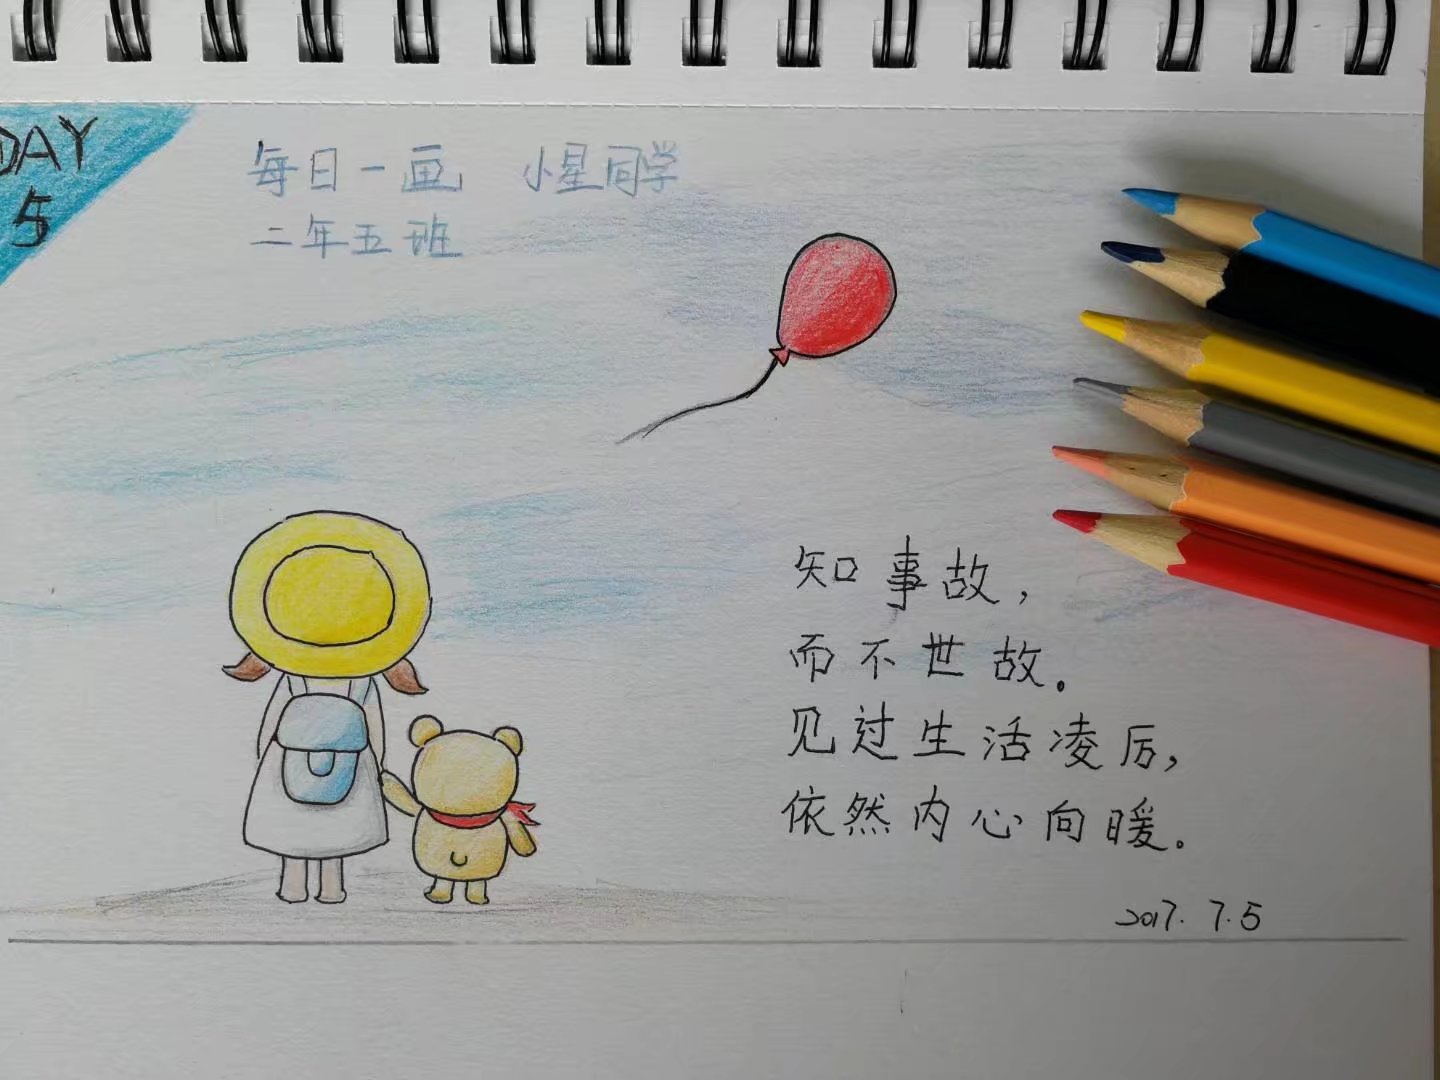 DAY
5
每日一画 小星同学
二年五班
知事故,
而不世故。
见过生活凌厉,
依然内心向暖。
2017.7.5